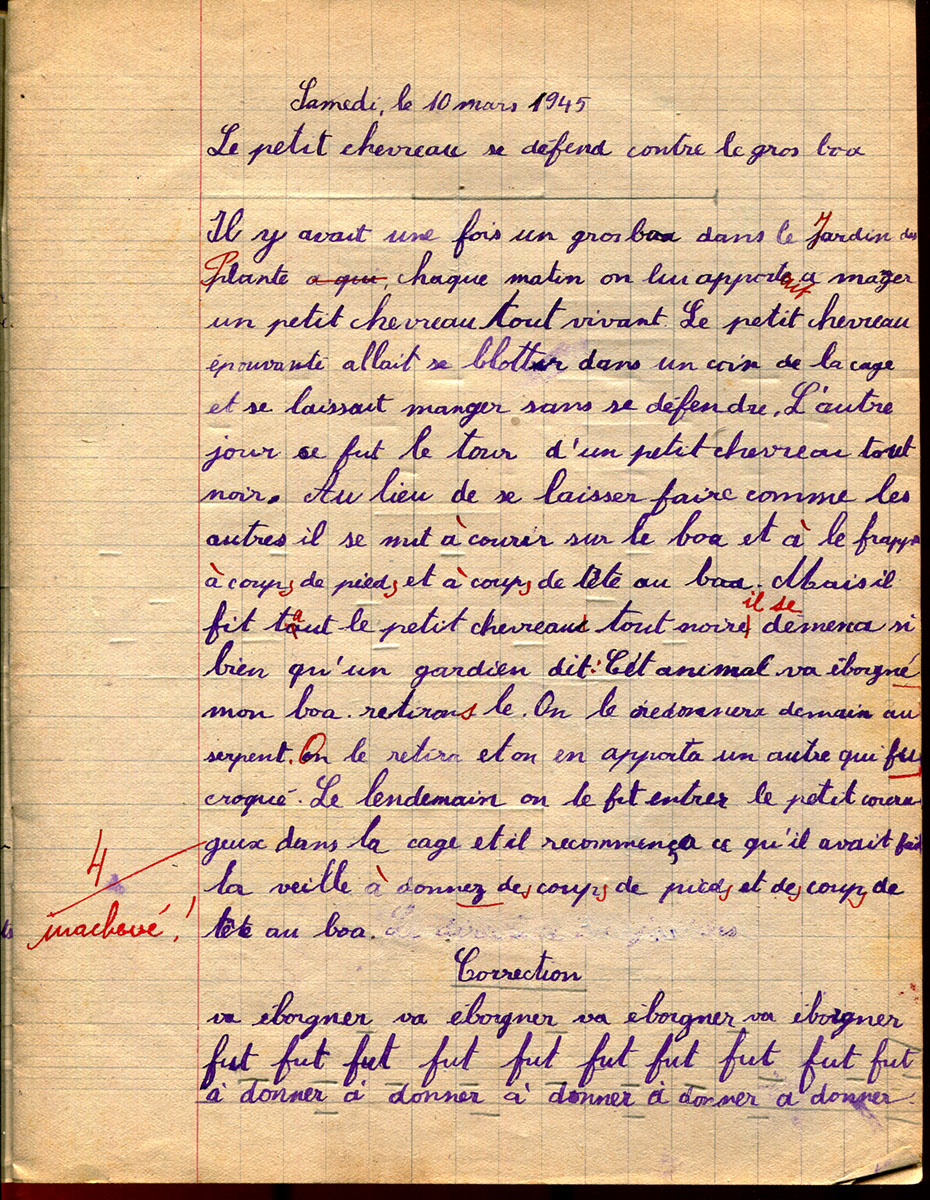 Samedi, le 10 mars 1945
Le petit chevreau se défend contre le gros boa
Il y avait une fois un gros boa dans le Jardin des
Plante a qui, chaque matin on lui apportait a mager
un petit chevreau tout vivant. Le petit chevreau
épouvanté allait se blottir dans un coin de la cage
et se laissait manger sans se défendre. L'autre
jour ce fut le tour d'un petit chevreau tout
noir. Au lieu de se laisser faire comme les
autres il se mit à courir sur le boa et à le frapper
à coups de pieds et à coups de tête au boa. Mais il
fit taut le petit chevreau tout noire il se démena si
bien qu'un gardien dit: Cét animal va éborgné
mon boa. retirons le. On le redonnera demain au
serpent. On le retira et on en apporta un autre qui fut
croqué. Le lendemain on le fit entrer le petit coura
geux dans la cage et il recommença ce qu'il avait fait
la veille à donnez des coups de pieds et des coups de
4
inachevé!
tête au boa.
Correction
va éborgner va éborgner va éborgner va éborgner
fut fut fut fut fut fut fut fut fut fut
à donner à donner à donner à donner a donner